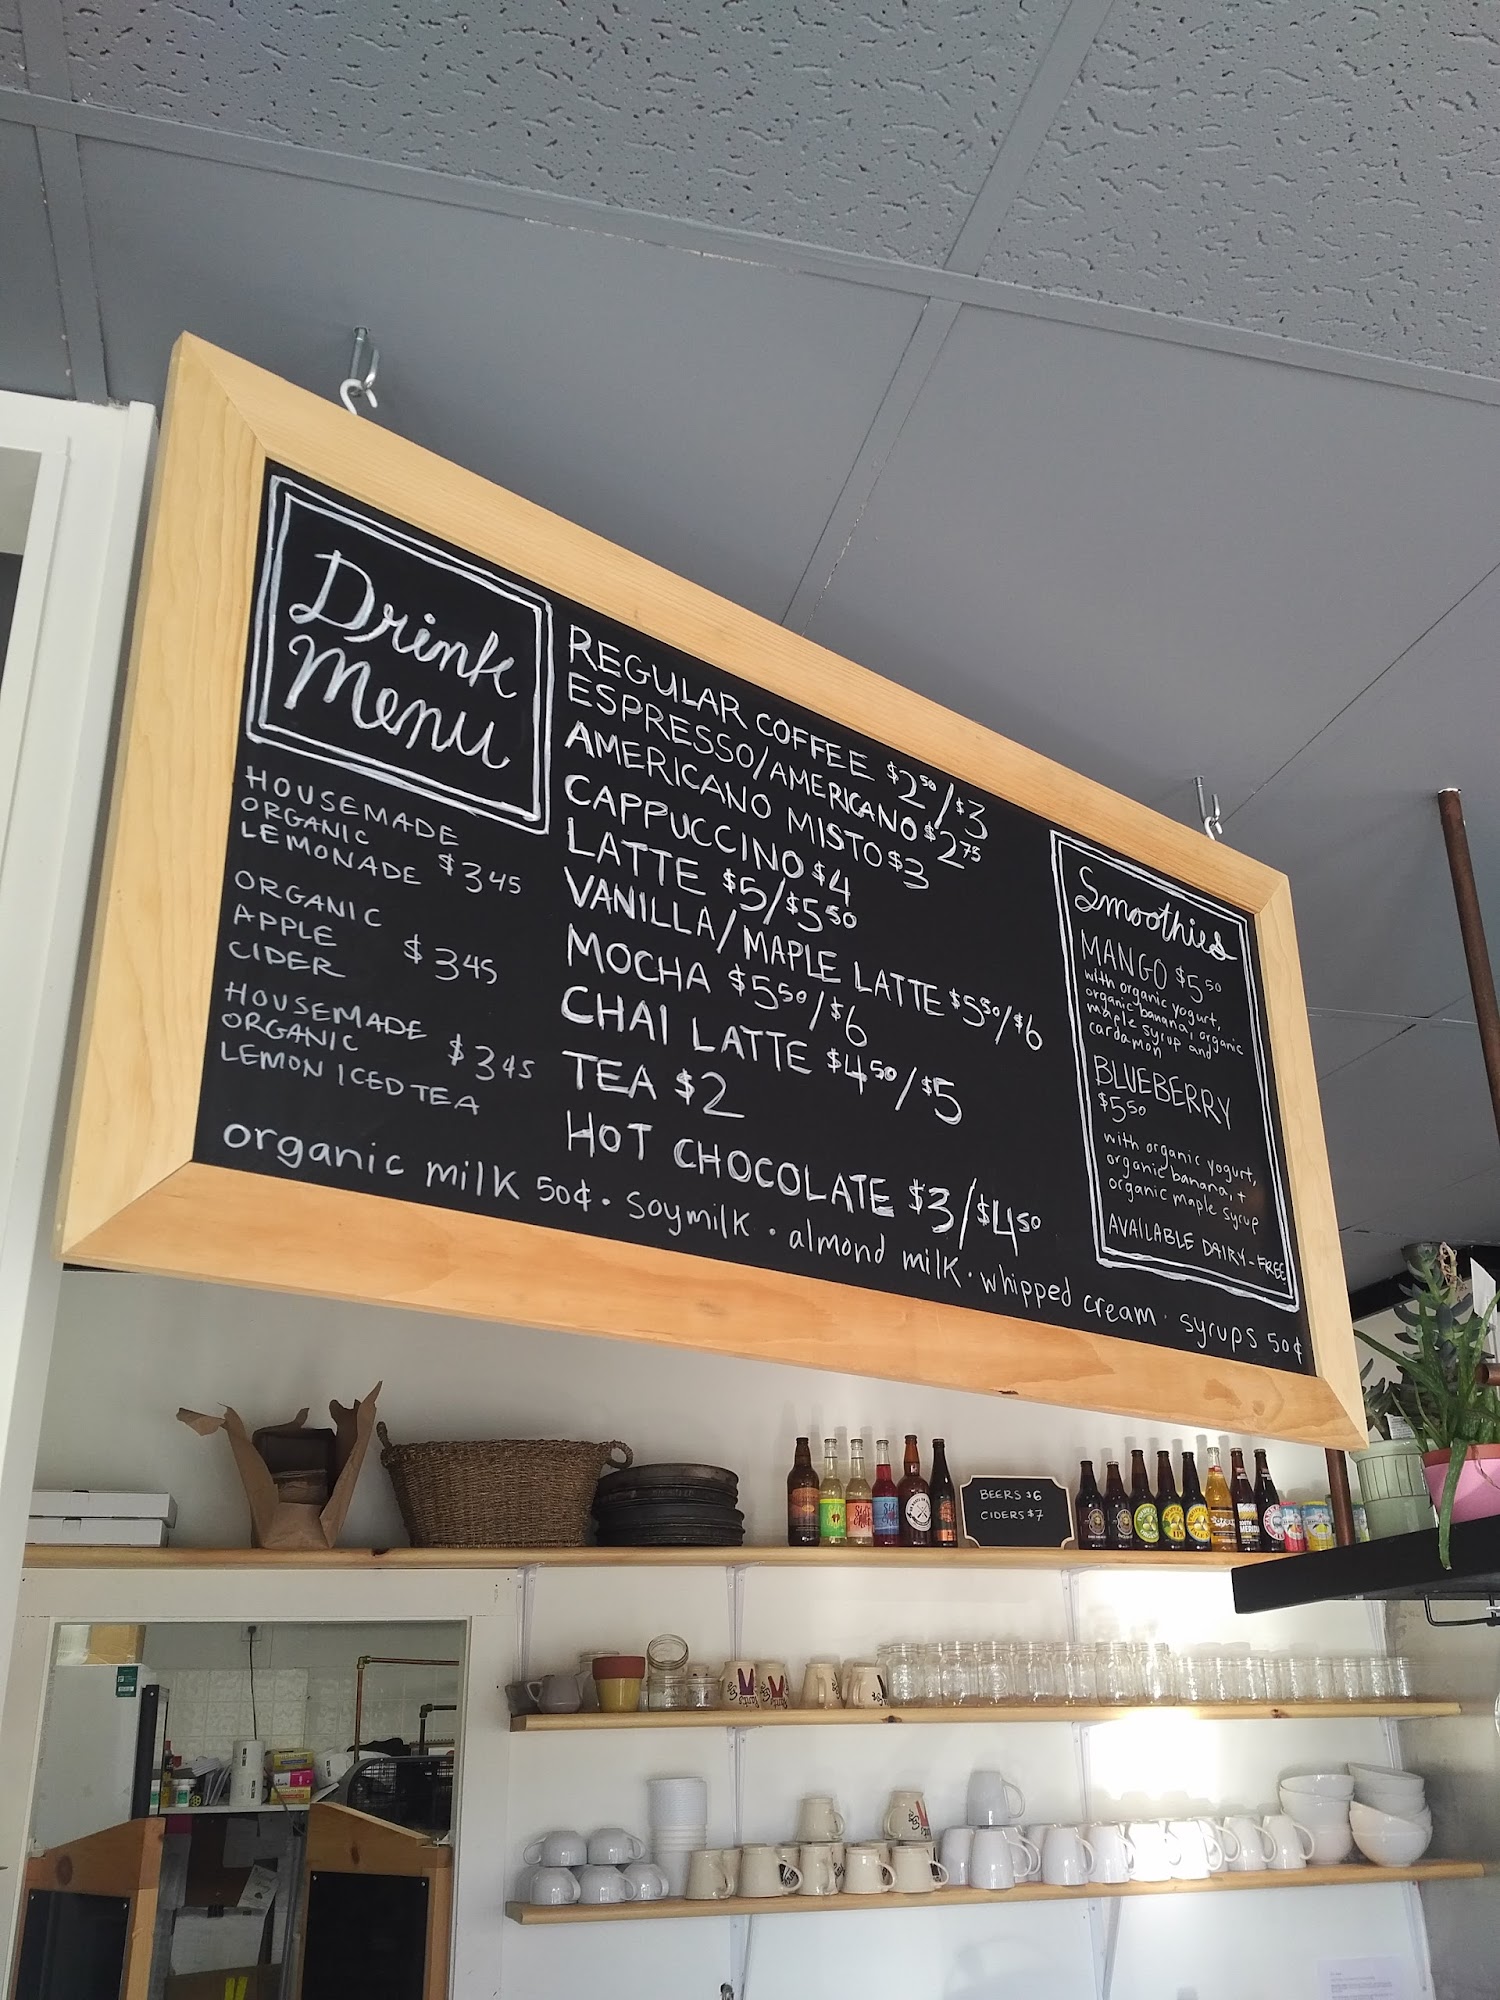 Drink
Menu
HOUSEMADE
ORGANIC
LEMONADE $3.45
ORGANIC
APPLE
CIDER $3.45
HOUSEMADE
ORGANIC
LEMON ICED TEA $3.45
REGULAR COFFEE $2.50/$3
ESPRESSO/AMERICANO $2.75
AMERICANO MISTO $3
CAPPUCCINO $4
LATTE $5/$5.50
VANILLA/MAPLE LATTE $5.50/$6
MOCHA $5.50/$6
CHAI LATTE $4.50/$5
TEA $2
HOT CHOCOLATE $3/$4.50
organic milk 50¢ · soymilk · almond milk · whipped cream · syrups 50¢
Smoothies
MANGO $5.50
with organic yogurt,
organic banana, organic
maple syrup and
cardamon
BLUEBERRY
$5.50
with organic yogurt,
organic banana, +
organic maple syrup
AVAILABLE DAIRY-FREE
BEERS $6
CIDERS $7